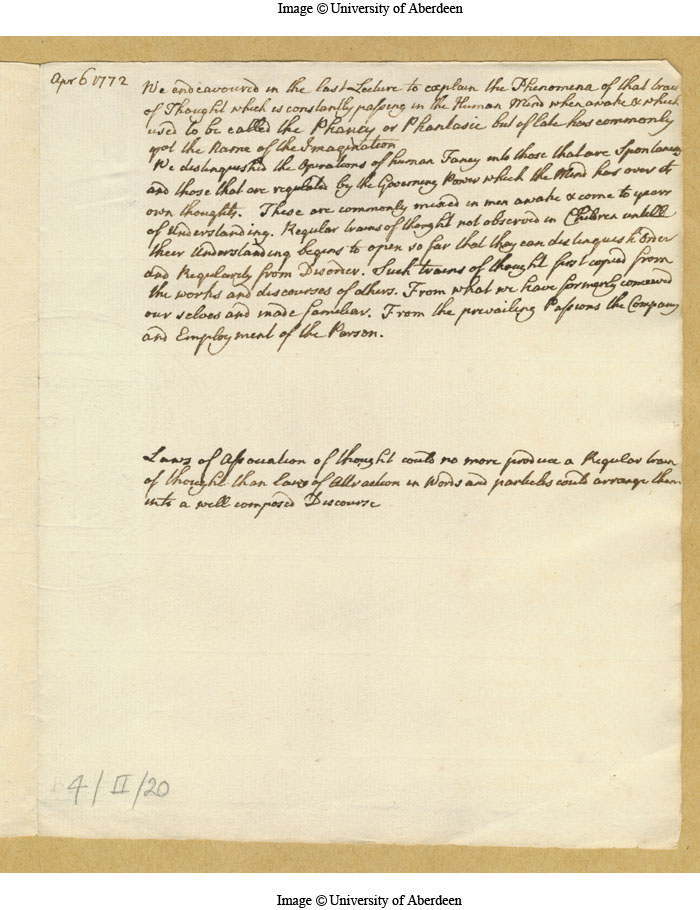 Image © University of Aberdeen
Apr 6 1772
We endeavoured in the last Lecture to explain the Phenomena of that train
of Thought which is constantly passing in the Human Mind when awake & which
used to be called the Phancy or Phantasie but of late has commonly
got the Name of the Imagination
We distinguishd the Operations of human Fancy into those that are Spontaneous
and those that are regulated by the Governing Power which the Mind has over its
own thoughts. These are commonly mixed in men awake & come to years
of Understanding. Regular trains of thought not observed in Children untill
their Understanding begins to open so far that they can distinguish Order
and Regularity from Disorder. Such trains of thought first copied from
the works and discourses of others. From what we have formerly conceived
our selves and made familiar. From the prevailing Passions the Company
and Employment of the Person.
Laws of Association of thought could no more produce a Regular train
of thought than laws of Attraction in Words and particles could arrange them
into a well composed Discourse
4/II/20
Image © University of Aberdeen